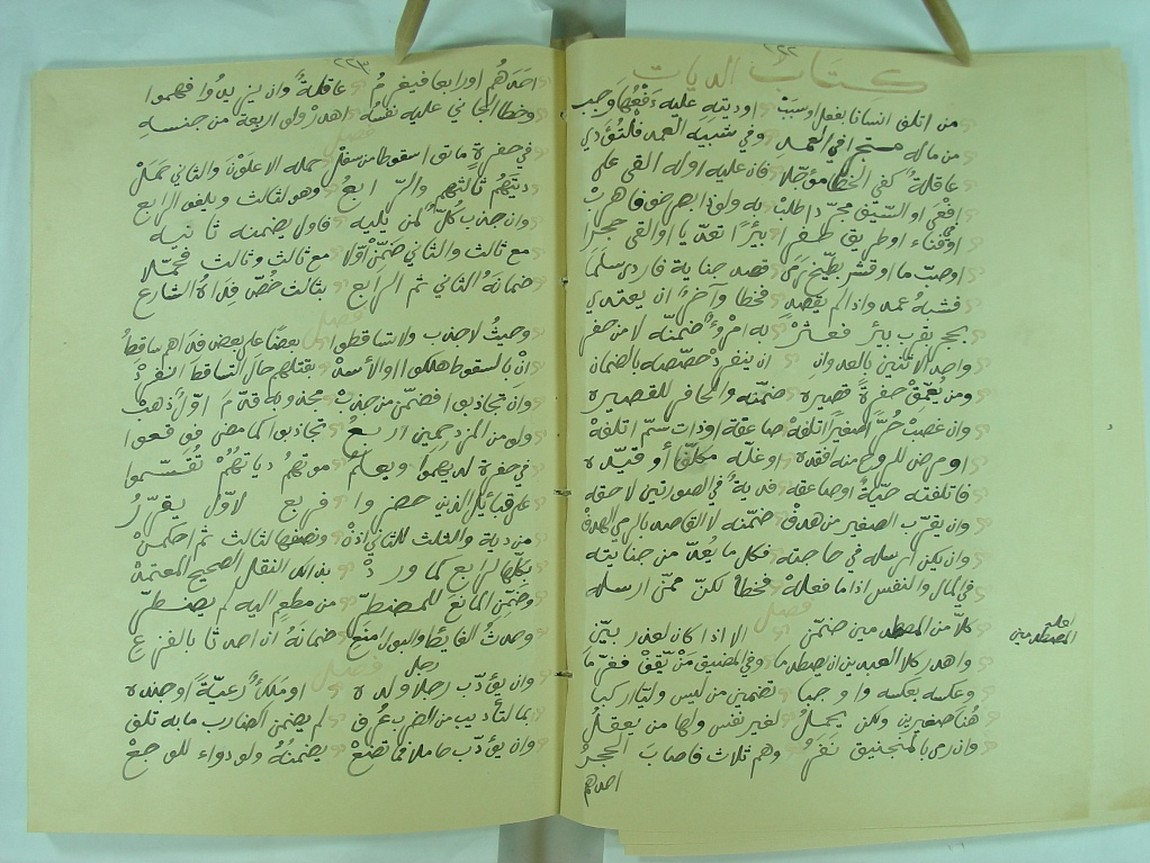 ٢٢٢
كتاب الديات
من اتلف انسانا بفعل او سبب او ديته عليه دفعها وجب
من ماله في العمد وفي شبيه العمد فلتؤدي
عاقلة كفي الخطا مؤجلا فان عليه اوله القى على
افعى او السيف مجردا طلب به ولو ذا بصر ضو فاهرب
او فناء او طريق حفرا بئرا تعديا او القى حجرا
او صب ما او قشر بطيخ رمى قصد جناية فاردى سلما
فشبه عمد واذا لم يقصد فخطا وآخر ان يعتدي
بحجر بقرب بئر فعثر به امرؤ ضمنه لا من حفر
واحد الاثنين بالعدوان ان ينفرد خصصه بالضمان
ومن يعمق حفرة قصيره ضمنه والحافر للقصيره
وان غصبت حرا صغيرا اتلفه صاعقة او ذات سم اتلفه
او مرض للروح منه افقده او غله مكلفا أو قيده
فاتلفته حية او صاعقه فدية في الصورتين لاحقه
وان يقرب الصغير من هدف ضمنه لا القاصد بالرمي الهدف
وان يكن ارسله في حاجته فكل ما يعد من جنايته
في المال والنفس اذا ما فعله فخطأ لكن ممن ارسله
فصل
كلا من المصطدمين ضمن الا اذا كان لعذر بين
واهدر كلا العبدين ان يصطدما وفي المضيق من يقف فغرما
وعكسه بعكسه واوجبا تضمين من ليس
هنا صغيرين ولكن يحمل لغير نفس ولها من يعقل
وان رمى بالمنجنيق نفر وهم ثلاث فاصاب الحجر
احدهم
المصطدمين
٢٢٣
احدهم او رابعا فيغرم عاقلة وان يزيدوا فهموا
وخطا الجاني عليه نفسه اهدر ولو اربعة من جنسه
فصل
في حفرة ماتوا سقوطا من سفل حمله الاعلون والثاني حمل
ديتهم ثالثهم والرابع وهو لثالث ويلغو الرابع
وان جذب كل لمن يليه فاول يضمنه ثانيه
مع ثالث والثاني ضمن اولا مع ثالث وثالث فحملا
ضمانه الثاني ثم الرابع بثالث خص فداه الشارع
فصل
وحيث لا جذب ولا تساقطوا بعضا على بعض فدا هم ساقط
ان بالسقوط هلكوا او الأسد بقتلهم حال التساقط انفرد
وان تجاذبوا فضمن من جذب مجذوبه قدم اول ذهب
ولو من المزدحمين اربع تجاذبوا كما مضى فوقعوا
في حفرة لديهموا ويعلم موتهم دياتهم تقسموا
على قبائل الذين حضروا فربع لاول يقرر
من دية والثلث للثاني اذن ونصفها لثالث ثم احكمن
بكلها لرابع كما ورد بذاك النقل الصحيح المعتمد
وضمن المانع للمضطر من مطعم اليه لم يضطر
وحدث الغائط والبول امنع ضمانه ان احدثا بالفزع
فصل
وان يؤدب رجل ولده او ملك رعية او جنده
بما لتأديب من الضرب عرف لم يضمن الضارب ما به تلف
وان يؤدب حاملا فما تضع يضمنه ولو دواء للوجع